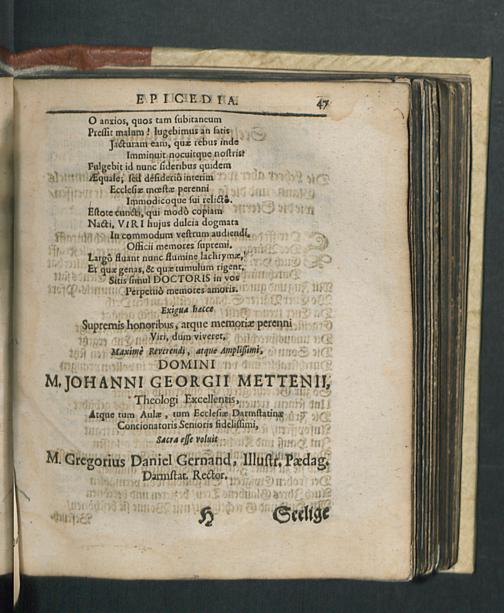 EPICEDIA. 47
O anxios, quos tam subitaneum
Pressit malum! lugebimus an satis
Jacturam eam, quæ rebus inde
Imminuit nocuitque nostris?
Fulgebit id nunc sideribus quidem
Æquale; sed desideriô interim
Ecclesiæ mœstæ perenni
Immodicoque sui relictô.
Estote cuncti, qui modò copiam
Nacti, VIRI hujus dulcia dogmata
In commodum vestrum audiendi,
Officii memores supremi.
Largô fluant nunc flumine lachrymæ,
Et quæ genas, & quæ tumulum rigent,
Sitis simul DOCTORIS in vos
Perpetuò memores amoris.
Exigua hæcce
Supremis honoribus, atque memoriæ perenni
Viri, dum viveret,
Maximè Reverendi, atque Amplissimi,
DOMINI
M. JOHANNI GEORGII METTENII,
Theologi Excellentis,
Atque tum Aulæ, tum Ecclesiæ Darmstatinæ
Concionatoris Senioris fidelissimi,
Sacra esse voluit
M. Gregorius Daniel Gernand, Illustr. Pædag.
Darmstat. Rector.
H Seelige